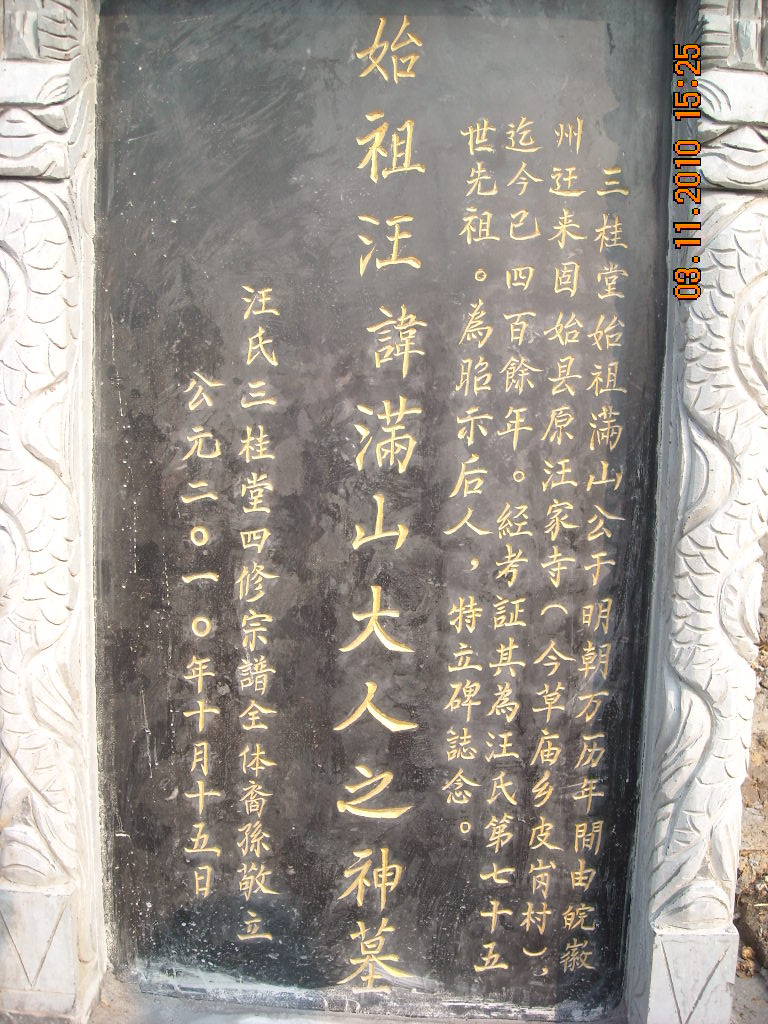 三桂堂始祖滿山公于明朝万历年間由皖徽
州迁来固始县原汪家寺（今草庙乡皮岗村），
迄今已四百餘年。经考証其為汪氏第七十五
世先祖。為昭示后人，特立碑誌念。
始祖汪諱滿山大人之神墓
汪氏三桂堂四修宗譜全体裔孫敬立
公元二〇一〇年十月十五日
03.11.2010 15:25